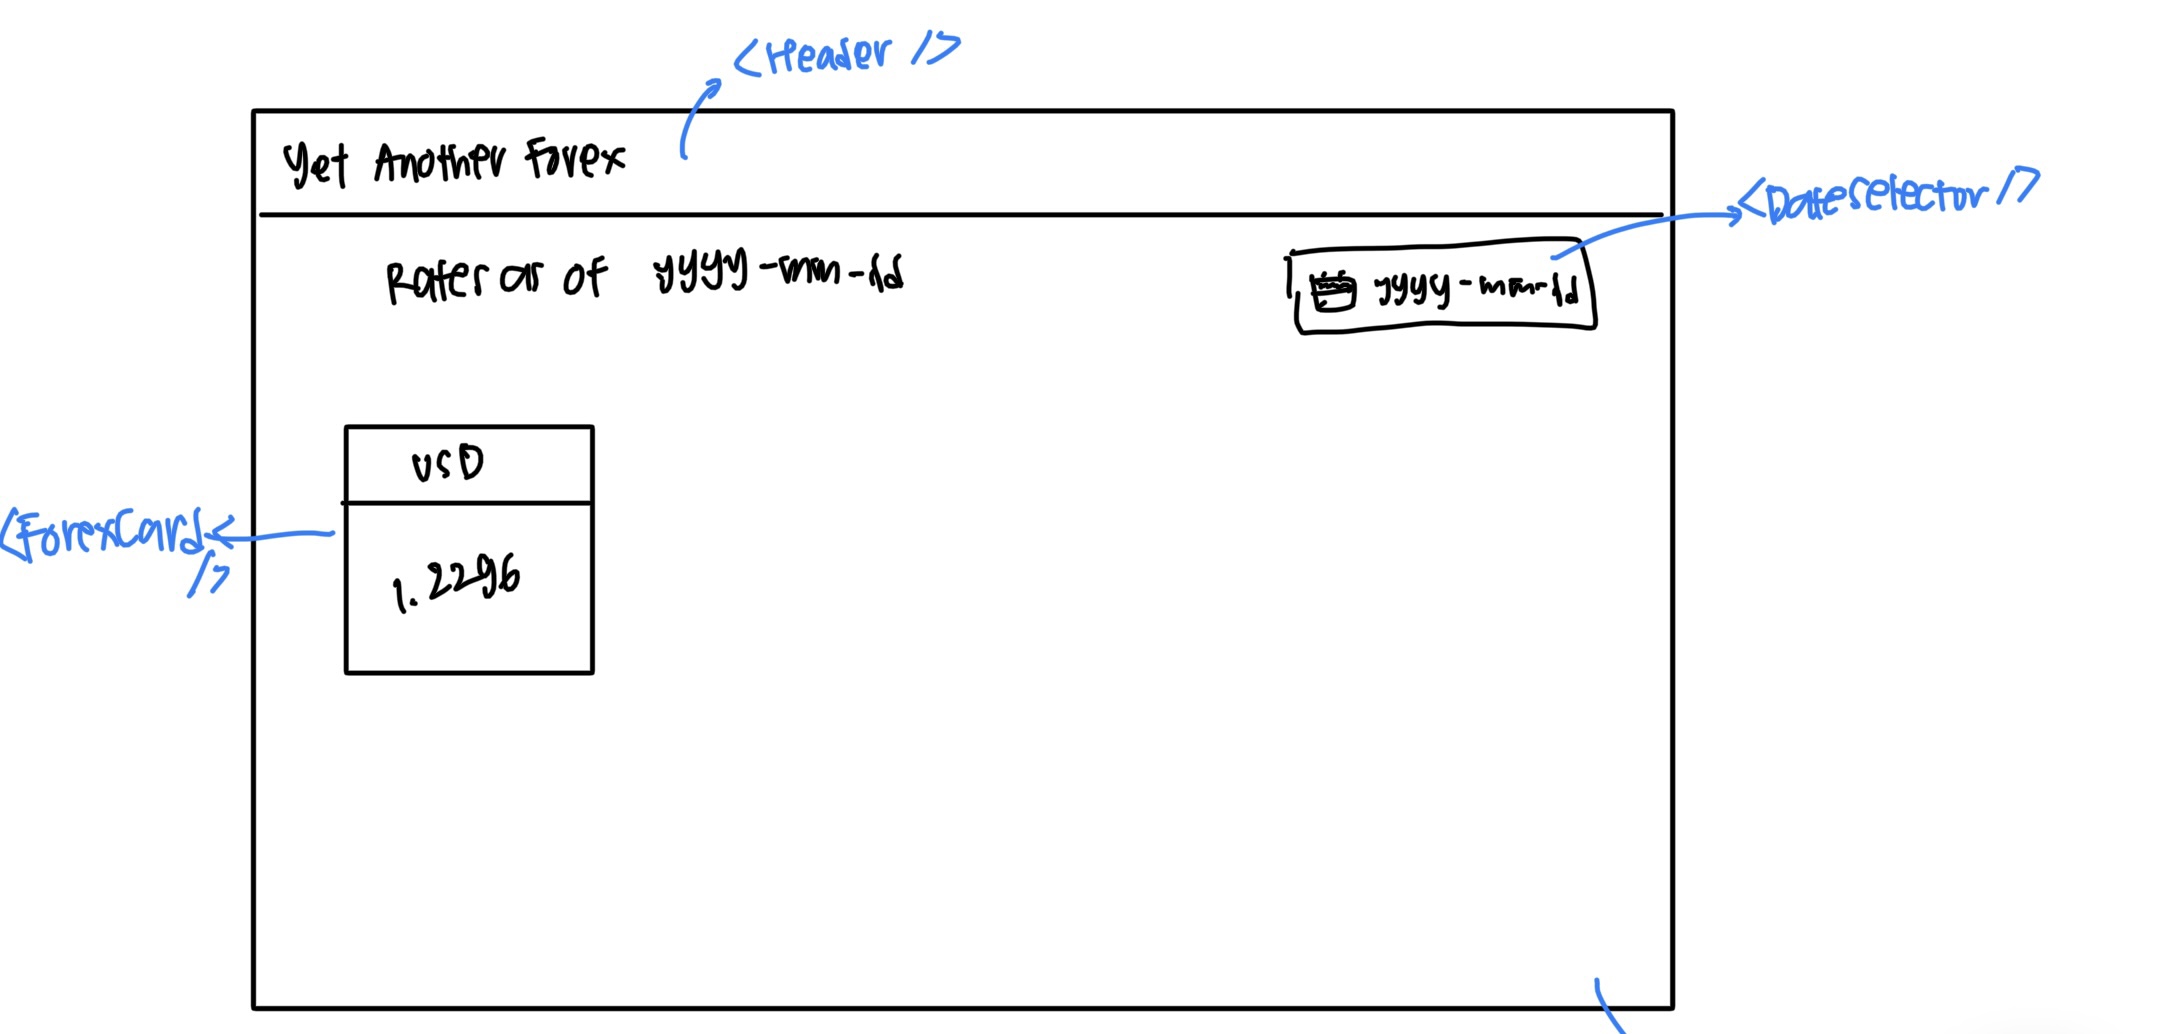 <Header />
Yet Another Forex
<DateSelector />
Rates as of yyyy-mm-dd
yyyy-mm-dd
USD
<ForexCard
/>
1.2296